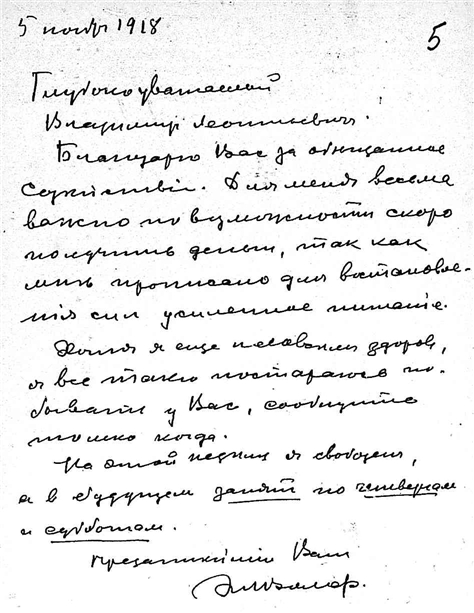 5 ноябр 1918
5
Глубокоуважаемый
Владимир Леонтьевич.
Благодарю Вас за обещанное
содействiе. Для меня весьма
важно по возможности скоро
получить деньги, так как
мнѣ прописано для востановле-
нiя сил усиленное питанiе.
Хотя я еще не совсем здоров,
я все таки постараюсь по-
бывать у Вас, сообщите
только когда.
На этой недѣлѣ я свободен,
а в будущем занят по четвергам
и субботам.
Преданнѣйшiй Ваш